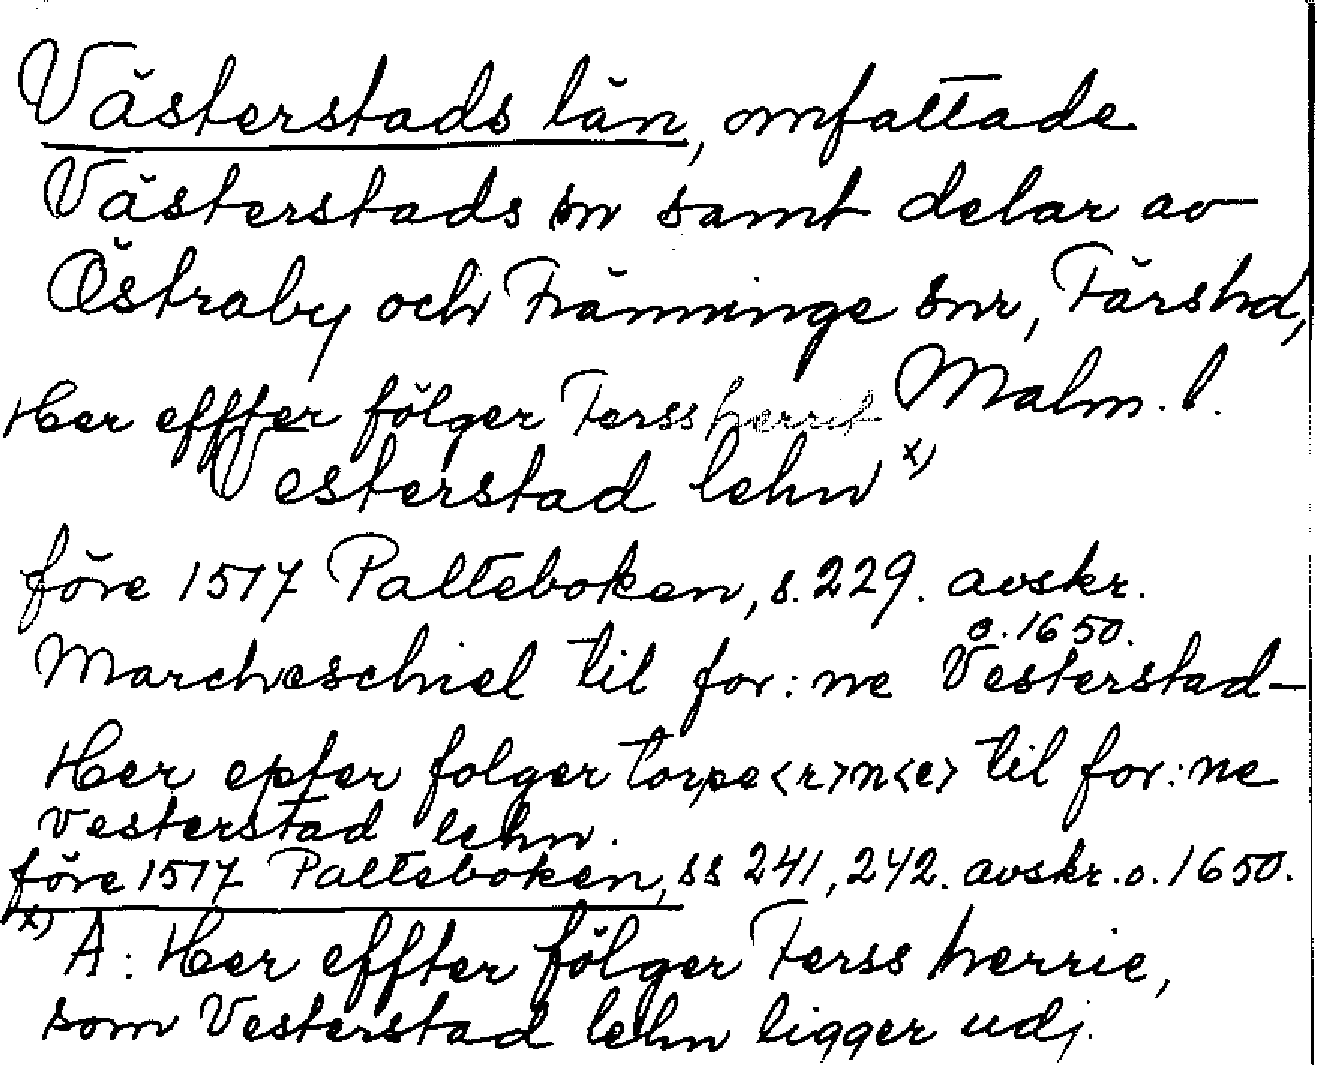 Västerstads län, omfattade
Västerstads sn samt delar av
Östraby och Främninge snr, Färs hd,
Malm. l.
Her effter fölger Ferss herrit
Vesterstad lehn x)
före 1517 Palteboken, s. 229. avskr.
o. 1650.
Marcheschiel til for:ne Vesterstad-
Her epter folger torpe<r>n<e> til for:ne
Vesterstad lehn.
före 1517 Palteboken, ss 241, 242. avskr. o. 1650.
x) A: Her effter fölger Ferss herrie,
som Vesterstad lehn ligger udj.